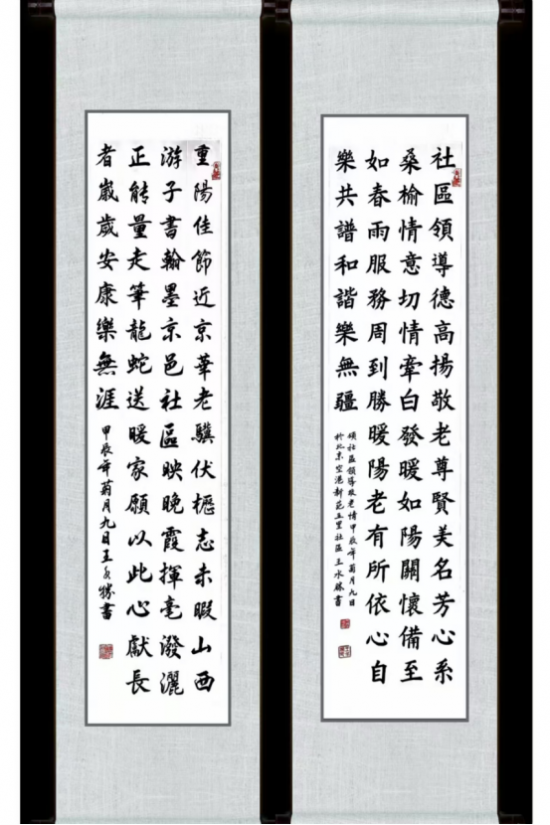 社區領導德高揚敬老尊賢美名芳心系
桑榆情意切情牽白發暖如陽關懷備至
如春雨服務周到勝暖陽老有所依心自
樂共譜和諧樂無疆
頌社區領導敬老情甲辰年菊月九日
於北京空港新苑五里社區王水勝書
重陽佳節近京華老驥伏櫪志未暇山西
游子書翰墨京邑社區映晚霞揮毫潑灑
正能量走筆龍蛇送暖家願以此心獻長
者歲歲安康樂無涯
甲辰年菊月九日王水勝書